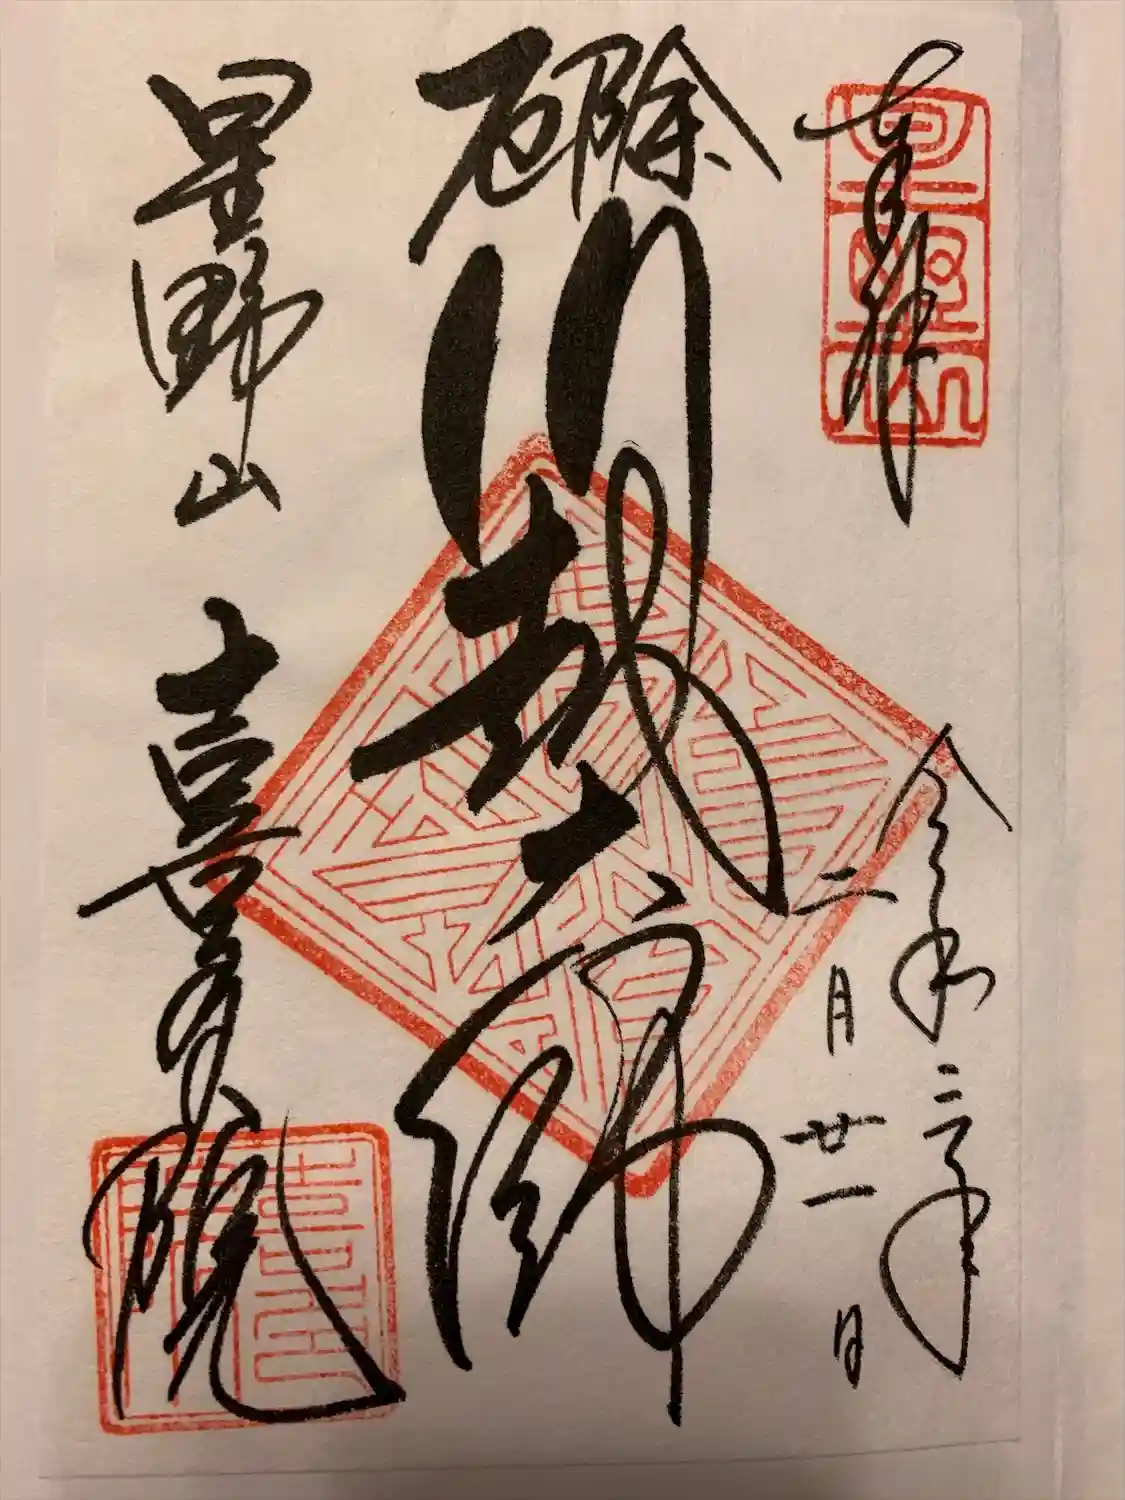 奉拝
令和三年
二月廿一日
厄除
川越大師
星野山 喜多院